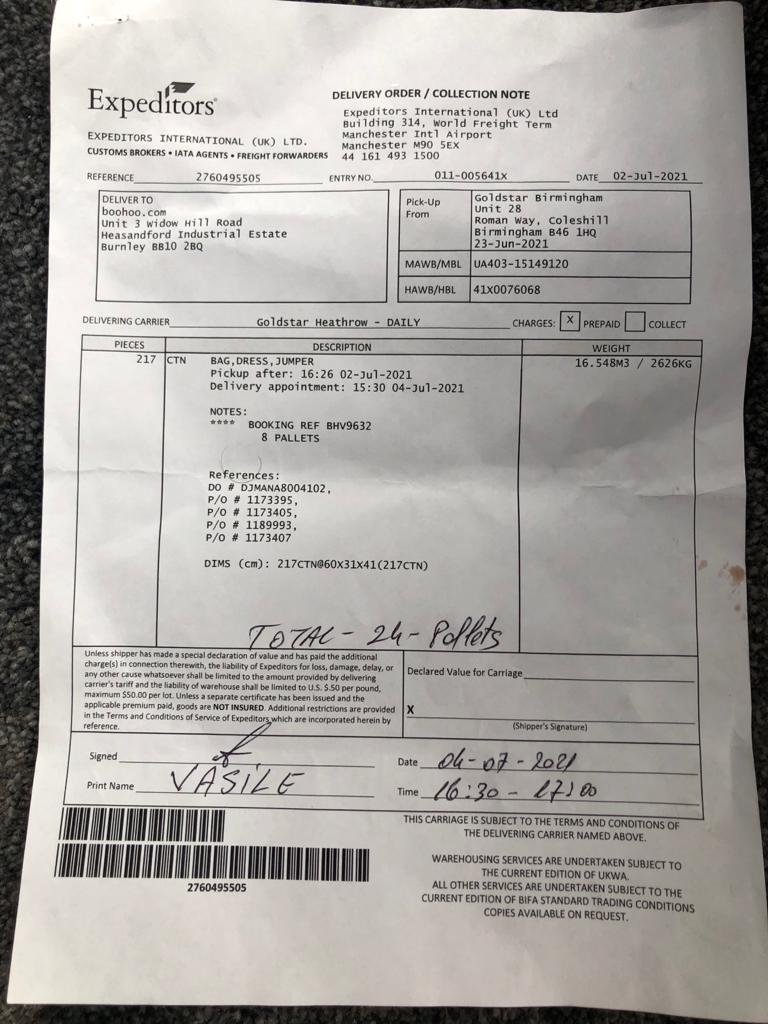 Expeditors
EXPEDITORS INTERNATIONAL (UK) LTD.
CUSTOMS BROKERS • IATA AGENTS • FREIGHT FORWARDERS
DELIVERY ORDER / COLLECTION NOTE
Expeditors International (UK) Ltd
Building 314, World Freight Term
Manchester Intl Airport
Manchester M90 5EX
44 161 493 1500
REFERENCE 2760495505 ENTRY NO. 011-005641X DATE 02-Jul-2021
DELIVER TO
boohoo.com
Unit 3 Widow Hill Road
Heasandford Industrial Estate
Burnley BB10 2BQ
Pick-Up From
Goldstar Birmingham
Unit 28
Roman Way, Coleshill
Birmingham B46 1HQ
23-Jun-2021
MAWB/MBL UA403-15149120
HAWB/HBL 41X0076068
DELIVERING CARRIER Goldstar Heathrow - DAILY CHARGES: X PREPAID COLLECT
PIECES DESCRIPTION WEIGHT
217 CTN BAG,DRESS,JUMPER 16.548M3 / 2626KG
Pickup after: 16:26 02-Jul-2021
Delivery appointment: 15:30 04-Jul-2021
NOTES:
**** BOOKING REF BHV9632
8 PALLETS
References:
DO # DJMANA8004102,
P/O # 1173395,
P/O # 1173405,
P/O # 1189993,
P/O # 1173407
DIMS (cm): 217CTN@60X31X41(217CTN)
TOTAL - 24 - Pallets
Unless shipper has made a special declaration of value and has paid the additional
charge(s) in connection therewith, the liability of Expeditors for loss, damage, delay, or
any other cause whatsoever shall be limited to the amount provided by delivering
carrier's tariff and the liability of warehouse shall be limited to U.S. $.50 per pound,
maximum $50.00 per lot. Unless a separate certificate has been issued and the
applicable premium paid, goods are NOT INSURED. Additional restrictions are provided
in the Terms and Conditions of Service of Expeditors which are incorporated herein by
reference.
Declared Value for Carriage
X
(Shipper's Signature)
Signed
Print Name VASILE
Date 04-07-2021
Time 16:30 - 17:00
2760495505
THIS CARRIAGE IS SUBJECT TO THE TERMS AND CONDITIONS OF
THE DELIVERING CARRIER NAMED ABOVE.
WAREHOUSING SERVICES ARE UNDERTAKEN SUBJECT TO
THE CURRENT EDITION OF UKWA.
ALL OTHER SERVICES ARE UNDERTAKEN SUBJECT TO THE
CURRENT EDITION OF BIFA STANDARD TRADING CONDITIONS
COPIES AVAILABLE ON REQUEST.